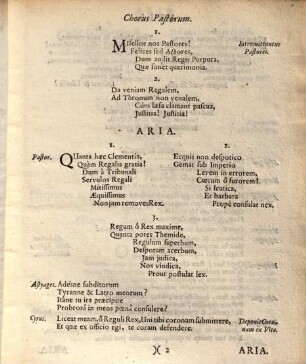 Chorus Pastorum.
1.
Misellos nos Pastores! Intromittuntur
Felices sed Actores, Pastores.
Dum adsit Regis Purpura,
Quæ sunet querimonia.
2.
Da veniam Regalem,
Ad Thronum non venalem,
Cùm læsa clamant pascua,
Justitia! Justitia!
ARIA.
1.
Pastor. QUanta hæc Clementia,
Quàm Regalis gratia!
Dum à Tribunali
Servulos Regali
Mitissimus
Æquissimus
Nonjam removes Rex.
2.
Ecquis non despotico
Gemat sub Imperio
Levem in errorem,
Cæcum ô furorem!
Si scutica,
Et barbara
Propè consulat nex.
3.
Regum ô Rex maxime,
Quanta potes Themide,
Regulum superbum,
Despotam acerbum,
Jam judica,
Nos vindica.
Prout postulat lex.
Astyages. Adeste subditorum
Tyranne & Latro meorum?
Itáne tu ira præcipite
Probrosè in meos pœnâ consulere?
Cyrus. Liceat meam, ô Reguli Rex, Uni tibi coronam submittere, Deponit Coro-
Et quæ ex officio egi, te coram defendere. nam ex Vito.
)( 2 ARIA.